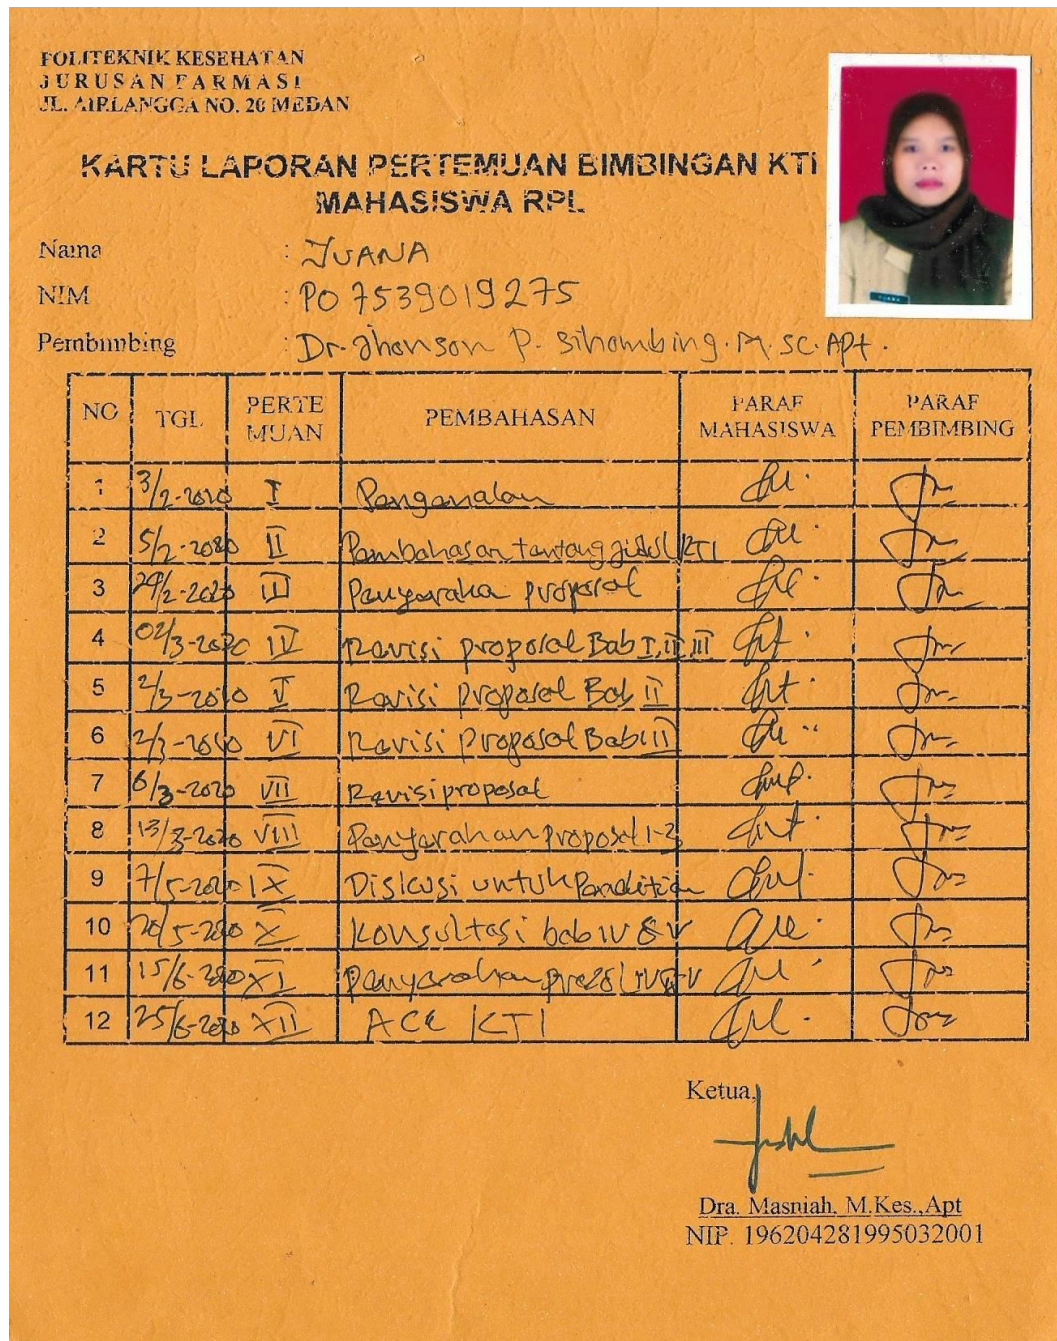 POLITEKNIK KESEHATAN
JURUSAN FARMASI
JL. AIRLANGGA NO. 20 MEDAN
KARTU LAPORAN PERTEMUAN BIMBINGAN KTI
MAHASISWA RPL
Nama : JUANA
NIM : PO7539019275
Pembimbing : Dr. Jhonson P. Sihombing. M.SC. Apt.
NO TGL PERTE MUAN PEMBAHASAN PARAF MAHASISWA PARAF PEMBIMBING
1 3/2-2020 I Pengenalan
2 5/2-2020 II Pembahasan tentang judul KTI
3 29/2-2020 III Penyeraha proposal
4 02/3-2020 IV Revisi proposal Bab I, II, III
5 2/3-2020 V Revisi proposal Bab II
6 2/3-2020 VI Revisi proposal Bab III
7 6/3-2020 VII Revisi proposal
8 13/3-2020 VIII Penyerahan proposal 1-3
9 7/5-2020 IX Diskusi untuk Penelitian
10 20/5-2020 X Konsultasi bab IV & V
11 15/6-2020 XI Penyerahan
12 25/6-2020 XII ACC KTI
Ketua,
Dra. Masniah, M.Kes.,Apt
NIP. 196204281995032001